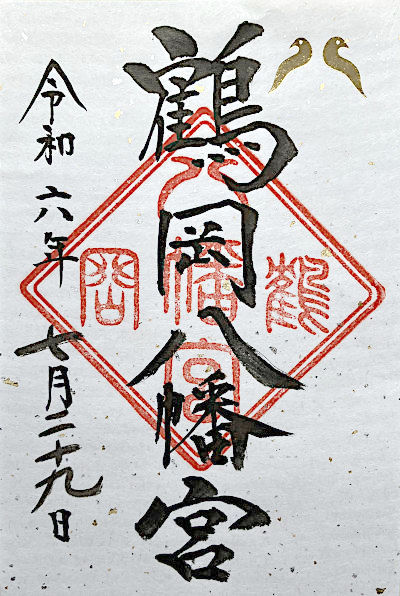 鶴岡八幡宮
令和六年七月二十九日
鶴
岡
八幡宮